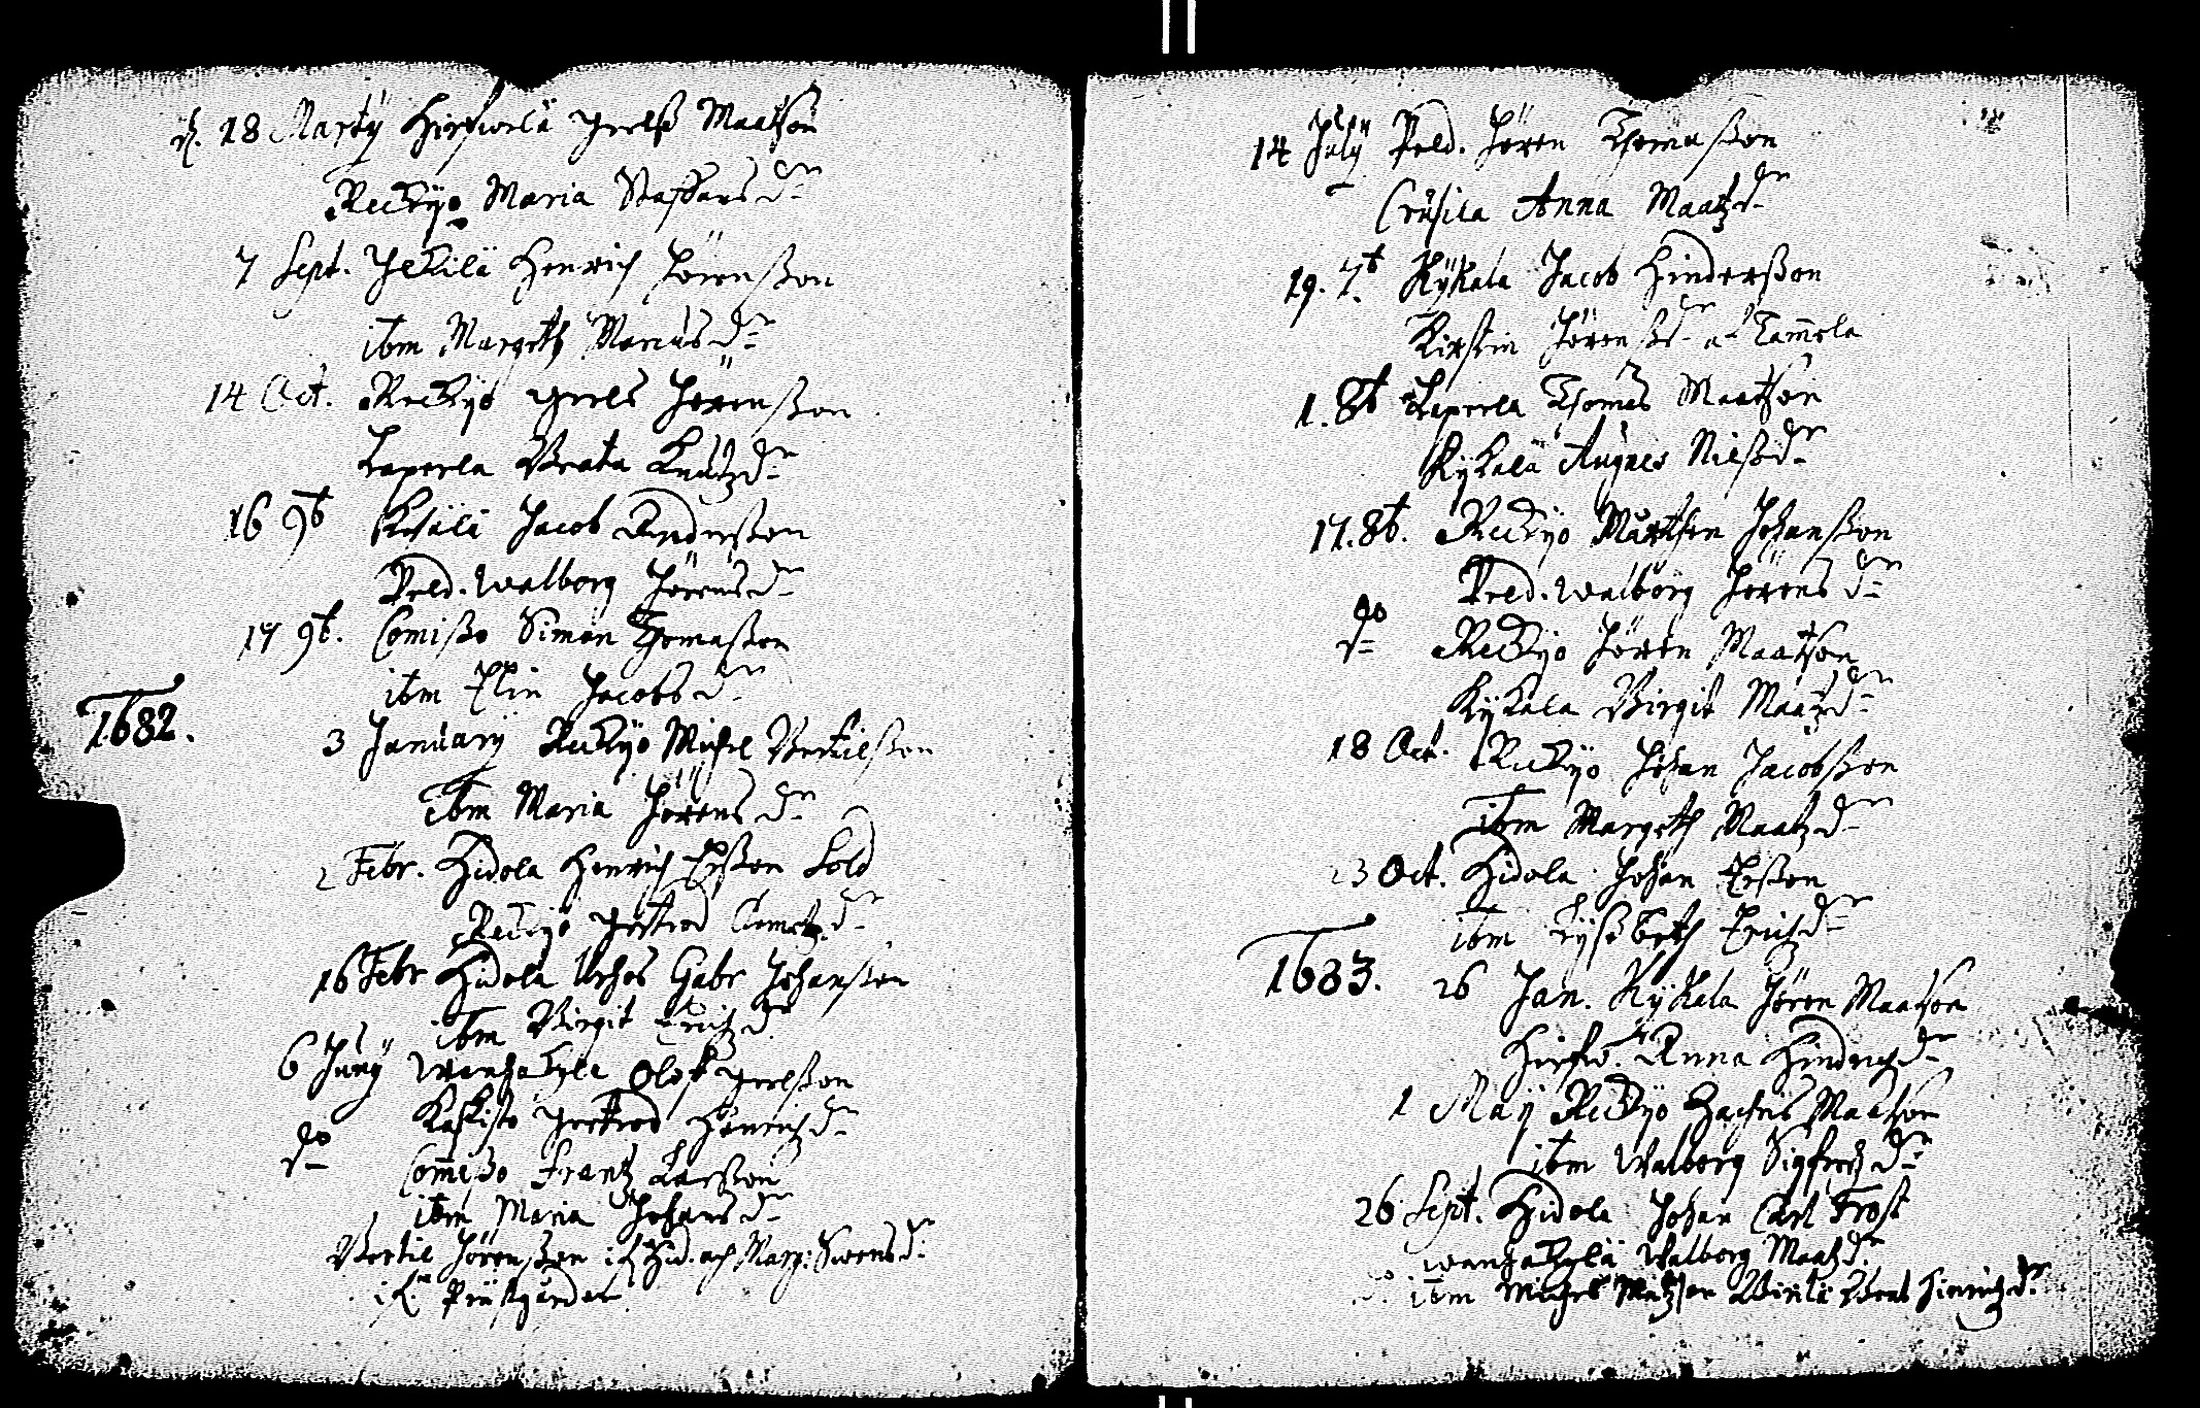 d. 18 Marty Hirfwelä Grels Maatßon
Reckyö Maria Staffans dr
7 Sept. Jeckilä Henrich Jörenßon
ibm Margeth Marcus dr
14 Oct. Reckyö Grels Jörenßon
Laperla Beata Knutz dr
16 9b Kesälä Jacob Andersson
Peld. Walborg Jörens dr
17 9b. Comißo Simon Thomaßon
ibm Elin Jacobs dr
1682.
3 January Reckyö Michel Bertilßon
ibm Maria Jörens dr
2 Febr. Hidola Henrich Erßon Sold
Reckyö Gertrod Clemetz dr
16 Febr Hidola Gabr Johanßon
ibm Birgit Erichz dr
6 Juny Wanhakyla Olof Grelsson
Kaskisto Gertrod Henrichz dr
do Comeßo Frantz Larßon
ibm Maria Johans dr
Bertil Jörenßon i Hid. och Marg: Swens d:
i Prästgården
14 July Peld. Jören Thomaßon
Crusila Anna Maatz dr
19. 7b Kykala Jacob Hinderßon
Kirstin Jörenß dr Tammela
1. 8b Laperla Thomas Maatßon
Kykala Augnes Nilß dr
17. 8b. Reckyö Marthen Johanßon
Peld. Walborg Jörens dr
do Reckyö Jören Maatßon
Kykala Birgit Maatz dr
18 Oct. Reckyö Johan Jacobßon
ibm Margeth Maatz dr
23 Oct. Hidola Johan Erßon
ibm Lyßbeth Erichz dr
1683.
26 Jan. Kykala Jören Maatßon
Hirfw. Anna Hindrichz dr
1 May Reckyö Zachris Maatßon
ibm Walborg Sigfredz dr
26 Sept. Hidola Johan Carl Frost
Wanhakylä Walborg Maatz dr
do ibm Michel Matzson Beat Hinrichz dr